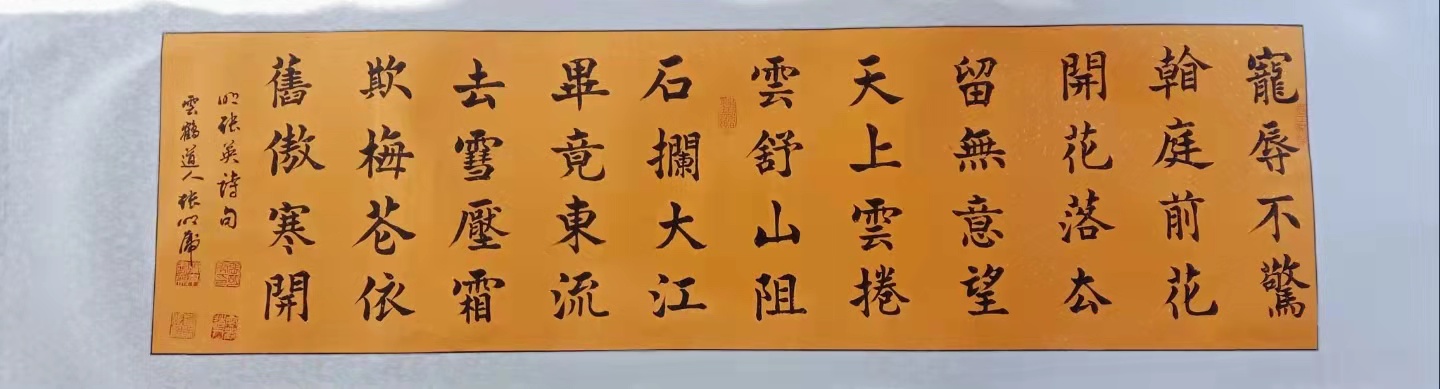 寵辱不驚
翰庭前花
開花落厺
留無意望
天上雲捲
雲舒山阻
石攔大江
畢竟東流
去雪壓霜
欺梅花依
舊傲寒開
明張英詩句
雲鶴道人張明虎